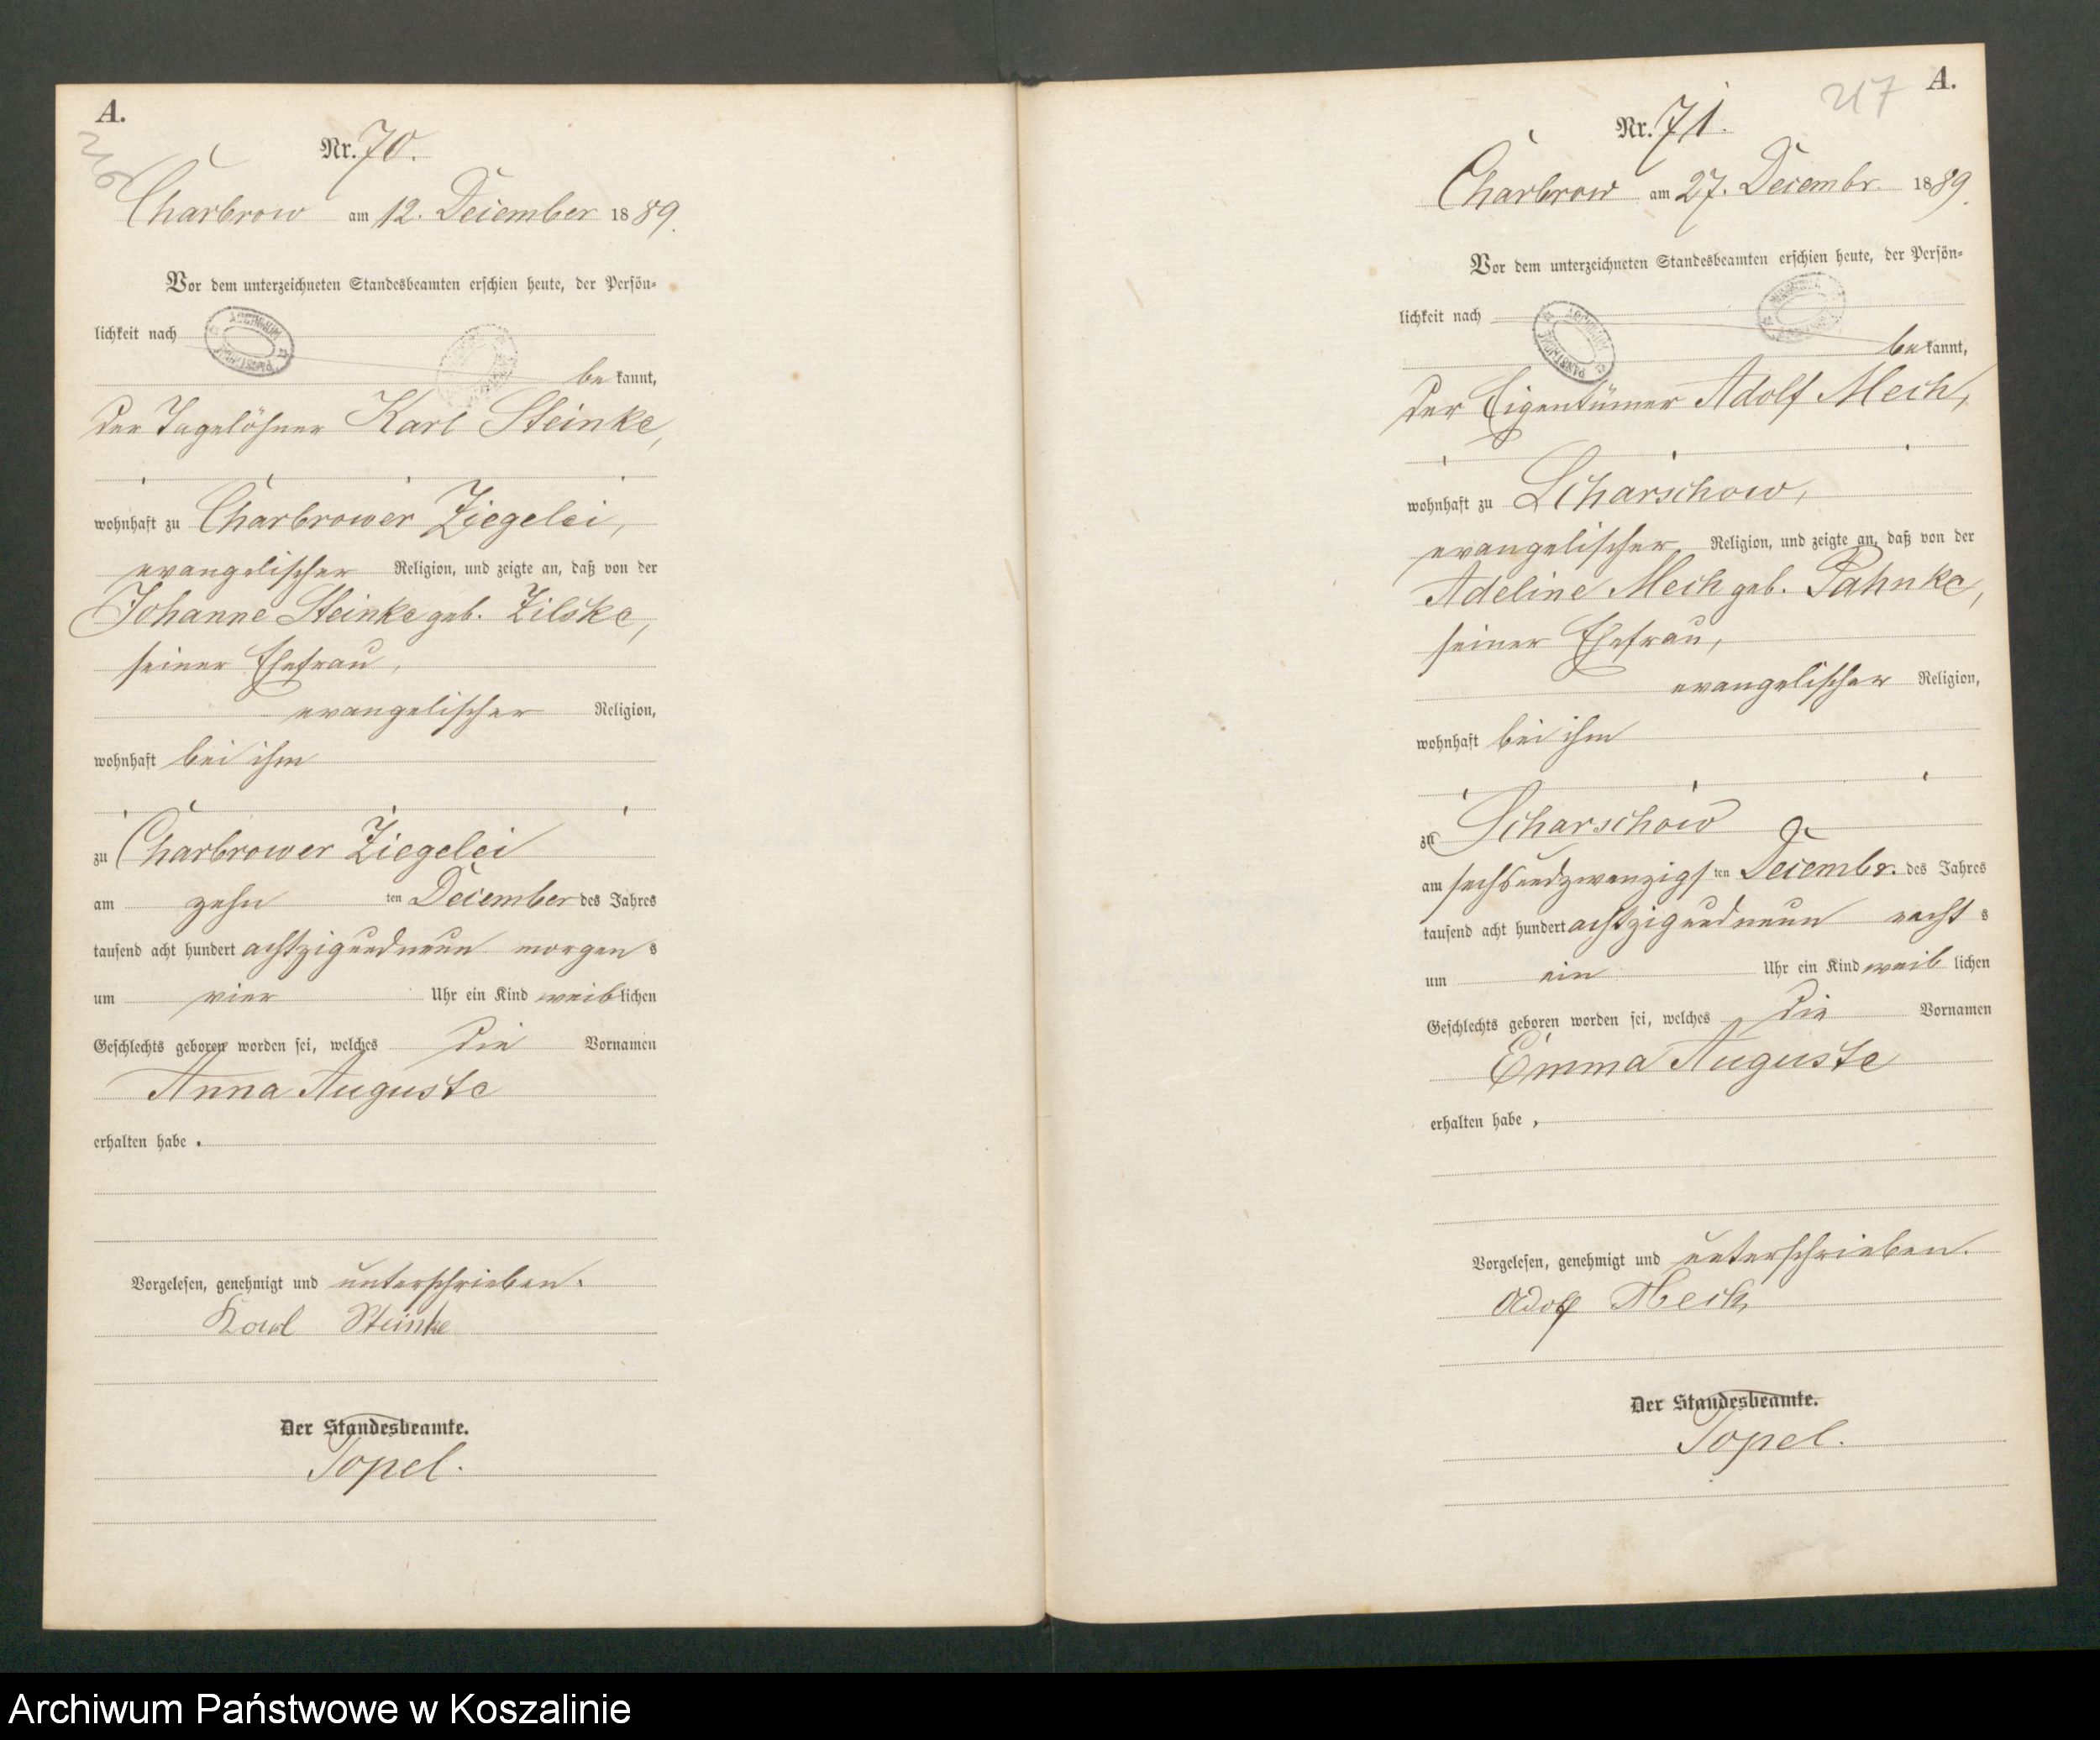 A.
216
Nr. 70.
Charbrow am 12. December 1889.
Vor dem unterzeichneten Standesbeamten erschien heute, der Persön-
lichkeit nach
bekannt,
der Tagelöhner Karl Steinke,
wohnhaft zu Charbrower Ziegelei,
evangelischer Religion, und zeigte an, daß von der
Johanne Steinke geb. Zilske,
seiner Ehefrau,
evangelischer Religion,
wohnhaft bei ihm
zu Charbrower Ziegelei
am zehn ten December des Jahres
tausend acht hundert achtzig und neun morgens
um vier Uhr ein Kind weiblichen
Geschlechts geboren worden sei, welches die Vornamen
Anna Auguste
erhalten habe.
Vorgelesen, genehmigt und unterschrieben.
Karl Steinke
Der Standesbeamte.
Topel.
A.
217
Nr. 71.
Charbrow am 27. Decembr. 1889.
Vor dem unterzeichneten Standesbeamten erschien heute, der Persön-
lichkeit nach
bekannt,
der Eigentümer Adolf Mech,
wohnhaft zu Scharschow,
evangelischer Religion, und zeigte an, daß von der
Adeline Mech geb. Pahnke,
seiner Ehefrau,
evangelischer Religion,
wohnhaft bei ihm
zu Scharschow
am sechsundzwanzigsten Decembr. des Jahres
tausend acht hundert achtzig und neun nachts
um ein Uhr ein Kind weiblichen
Geschlechts geboren worden sei, welches die Vornamen
Emma Auguste
erhalten habe,
Vorgelesen, genehmigt und unterschrieben.
Adolf Mech
Der Standesbeamte.
Topel.
Archiwum Państwowe w Koszalinie